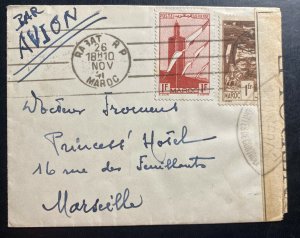 PAR
AVION
RABAT R.P.
26
18H10
NOV
MAROC
1F MAROC 1F
MAROC
Docteur Froment
Princess' Hotel
16 rue des Feuillants
Marseille